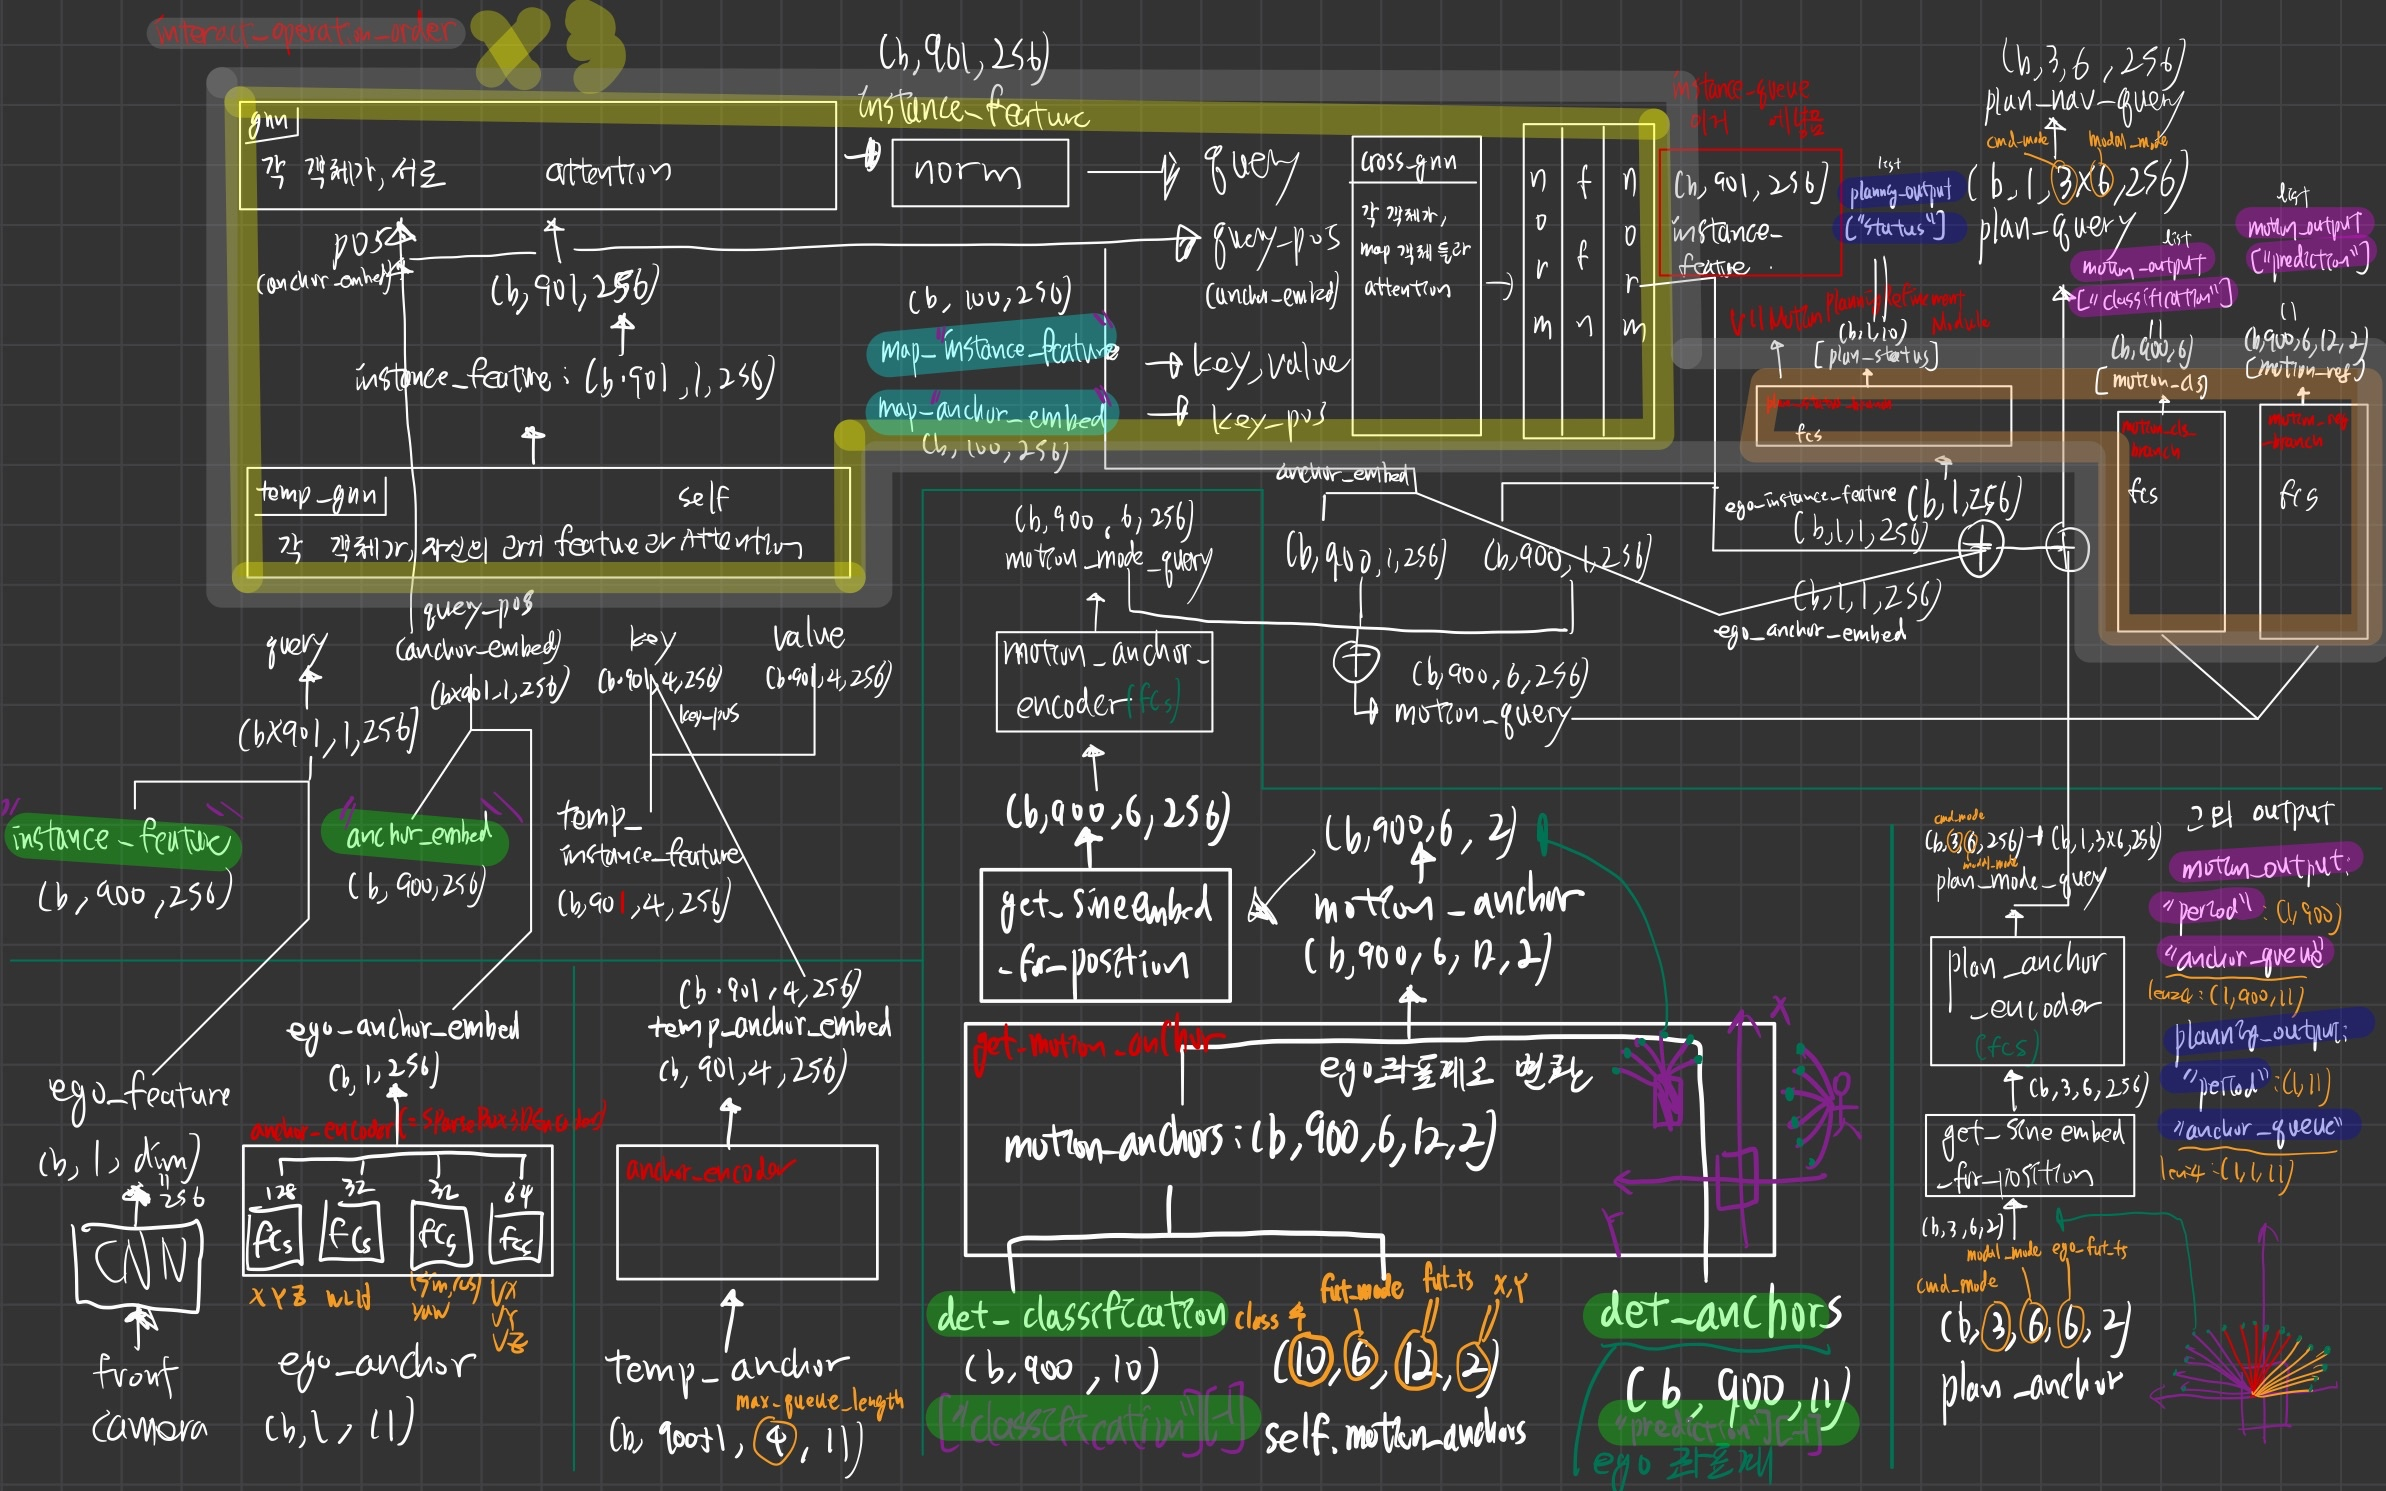 interact_operation_order
×3
gnn
각 객체가, 서로 attention
pos
(anchor_embed)
(b, 901, 256)
instance_feature : (b·901, 1, 256)
temp_gnn
self
각 객체가, 자신의 과거 feature와 Attention
(b, 901, 256)
instance_feature
norm
query
query_pos
(anchor_embed)
(b, 100, 256)
"map_instance_feature"
key, value
"map_anchor_embed"
key_pos
(b, 100, 256)
cross_gnn
각 객체가,
map 객체들과
attention
norm
ffn
norm
instance_queue
(b, 901, 256)
instance_
feature
list
planning_output
["status"]
(b, 3, 6, 256)
plan_nav_query
cmd_mode
modal_mode
(b, 1, 3×6, 256)
plan_query
list
motion_output
["classification"]
list
motion_output
["prediction"]
MotionPlanningRefinement
Module
(b, 1, 10)
[plan_status]
(b, 900, 6)
[motion_cls]
(b, 900, 6, 12, 2)
[motion_reg]
plan_status_branch
fcs
motion_cls_
branch
fcs
motion_reg
_branch
fcs
anchor_embed
ego_instance_feature
(b, 1, 256)
(b, 1, 1, 256)
(b, 1, 1, 256)
ego_anchor_embed
(b, 900, 6, 256)
motion_mode_query
(b, 900, 1, 256)
(b, 900, 1, 256)
motion_anchor_
encoder (fcs)
(b, 900, 6, 256)
motion_query
query
(b×901, 1, 256)
query_pos
(anchor_embed)
(b×901, 1, 256)
key
(b·901, 4, 256)
key_pos
value
(b·901, 4, 256)
"instance_feature"
(b, 900, 256)
"anchor_embed"
(b, 900, 256)
temp_
instance_feature
(b, 901, 4, 256)
ego_feature
(b, 1, dim)
256
CNN
front
camera
ego_anchor_embed
(b, 1, 256)
anchor_encoder (= SparseBox3DEncoder)
128
32
32
64
fcs
fcs
fcs
fcs
XYZ
WLH
(sin, cos)
yaw
VX
VY
VZ
ego_anchor
(b, 1, 11)
(b·901, 4, 256)
temp_anchor_embed
(b, 901, 4, 256)
anchor_encoder
temp_anchor
max_queue_length
(b, 900+1, 4, 11)
(b, 900, 6, 256)
get_sineembed
_for_position
(b, 900, 6, 2)
motion_anchor
(b, 900, 6, 12, 2)
get_motion_anchor
ego좌표계로 변환
motion_anchors : (b, 900, 6, 12, 2)
X
Y
det_classification
(b, 900, 10)
["classification"][-1]
class 수
fut_mode
fut_ts
X,Y
(10, 6, 12, 2)
self.motion_anchors
det_anchors
(b, 900, 11)
"prediction"][-1]
ego 좌표계
cmd_mode
(b, 3, 6, 256) → (b, 1, 3×6, 256)
modal_mode
plan_mode_query
plan_anchor
_encoder
(fcs)
(b, 3, 6, 256)
get_sineembed
_for_position
(b, 3, 6, 2)
modal_mode
ego_fut_ts
cmd_mode
(b, 3, 6, 6, 2)
plan_anchor
그외 output
motion_output:
"period" : (1, 900)
"anchor_queue"
len=4 : (1, 900, 11)
planning_output:
"period" : (1, 1)
"anchor_queue"
len=4 : (1, 1, 11)